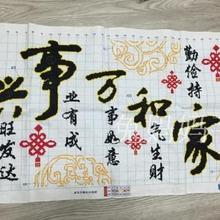 家
勤俭持
和
和气生财
万
万事如意
事
事业有成
兴
兴旺发达